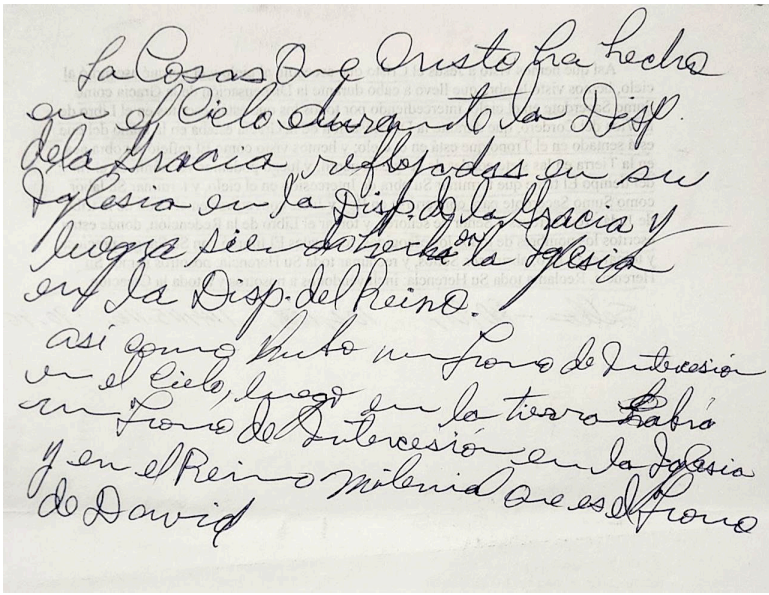 La Cosas Que Cristo ha hecho
en el Cielo durante la Disp.
de la Gracia reflejadas en su
Iglesia en la Disp. de la Gracia y
luego en la Iglesia
en la Disp. del Reino.
así como hubo un Trono de Intercesión
en el Cielo, luego en la tierra habrá
un Trono de Intercesión en la Iglesia
y en el Reino Milenial que es el Trono
de David